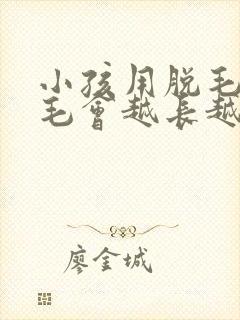 小孩用脱毛
毛會越长越
廖金城